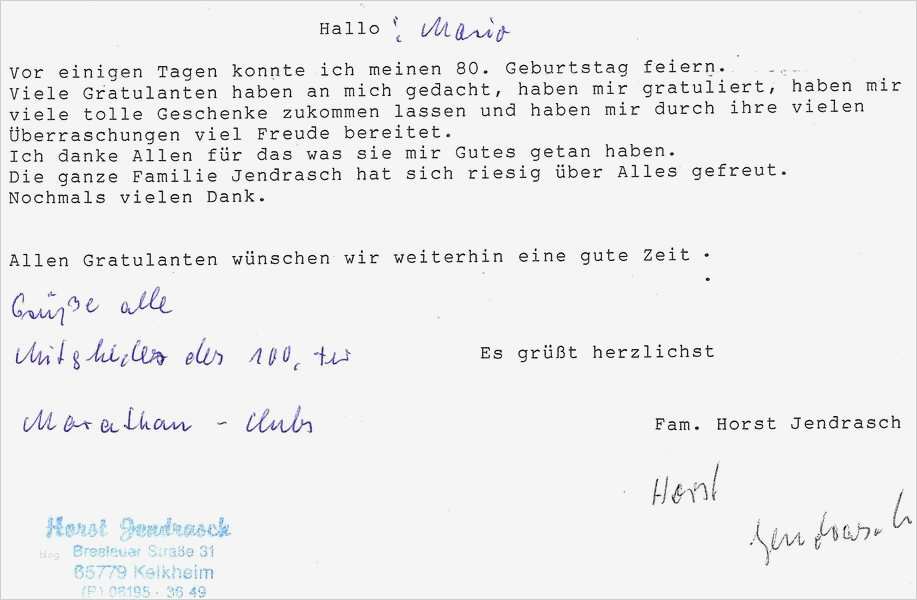 Hallo ! Mario
Vor einigen Tagen konnte ich meinen 80. Geburtstag feiern.
Viele Gratulanten haben an mich gedacht, haben mir gratuliert, haben mir
viele tolle Geschenke zukommen lassen und haben mir durch ihre vielen
Überraschungen viel Freude bereitet.
Ich danke Allen für das was sie mir Gutes getan haben.
Die ganze Familie Jendrasch hat sich riesig über Alles gefreut.
Nochmals vielen Dank.
Allen Gratulanten wünschen wir weiterhin eine gute Zeit .
Grüße alle
Mitglieder des 100, ter
Es grüßt herzlichst
Marathon - Clubs
Fam. Horst Jendrasch
Horst
Jendrasch
Horst Jendrasch
Breslauer Straße 31
65779 Kelkheim
06195 - 36 49